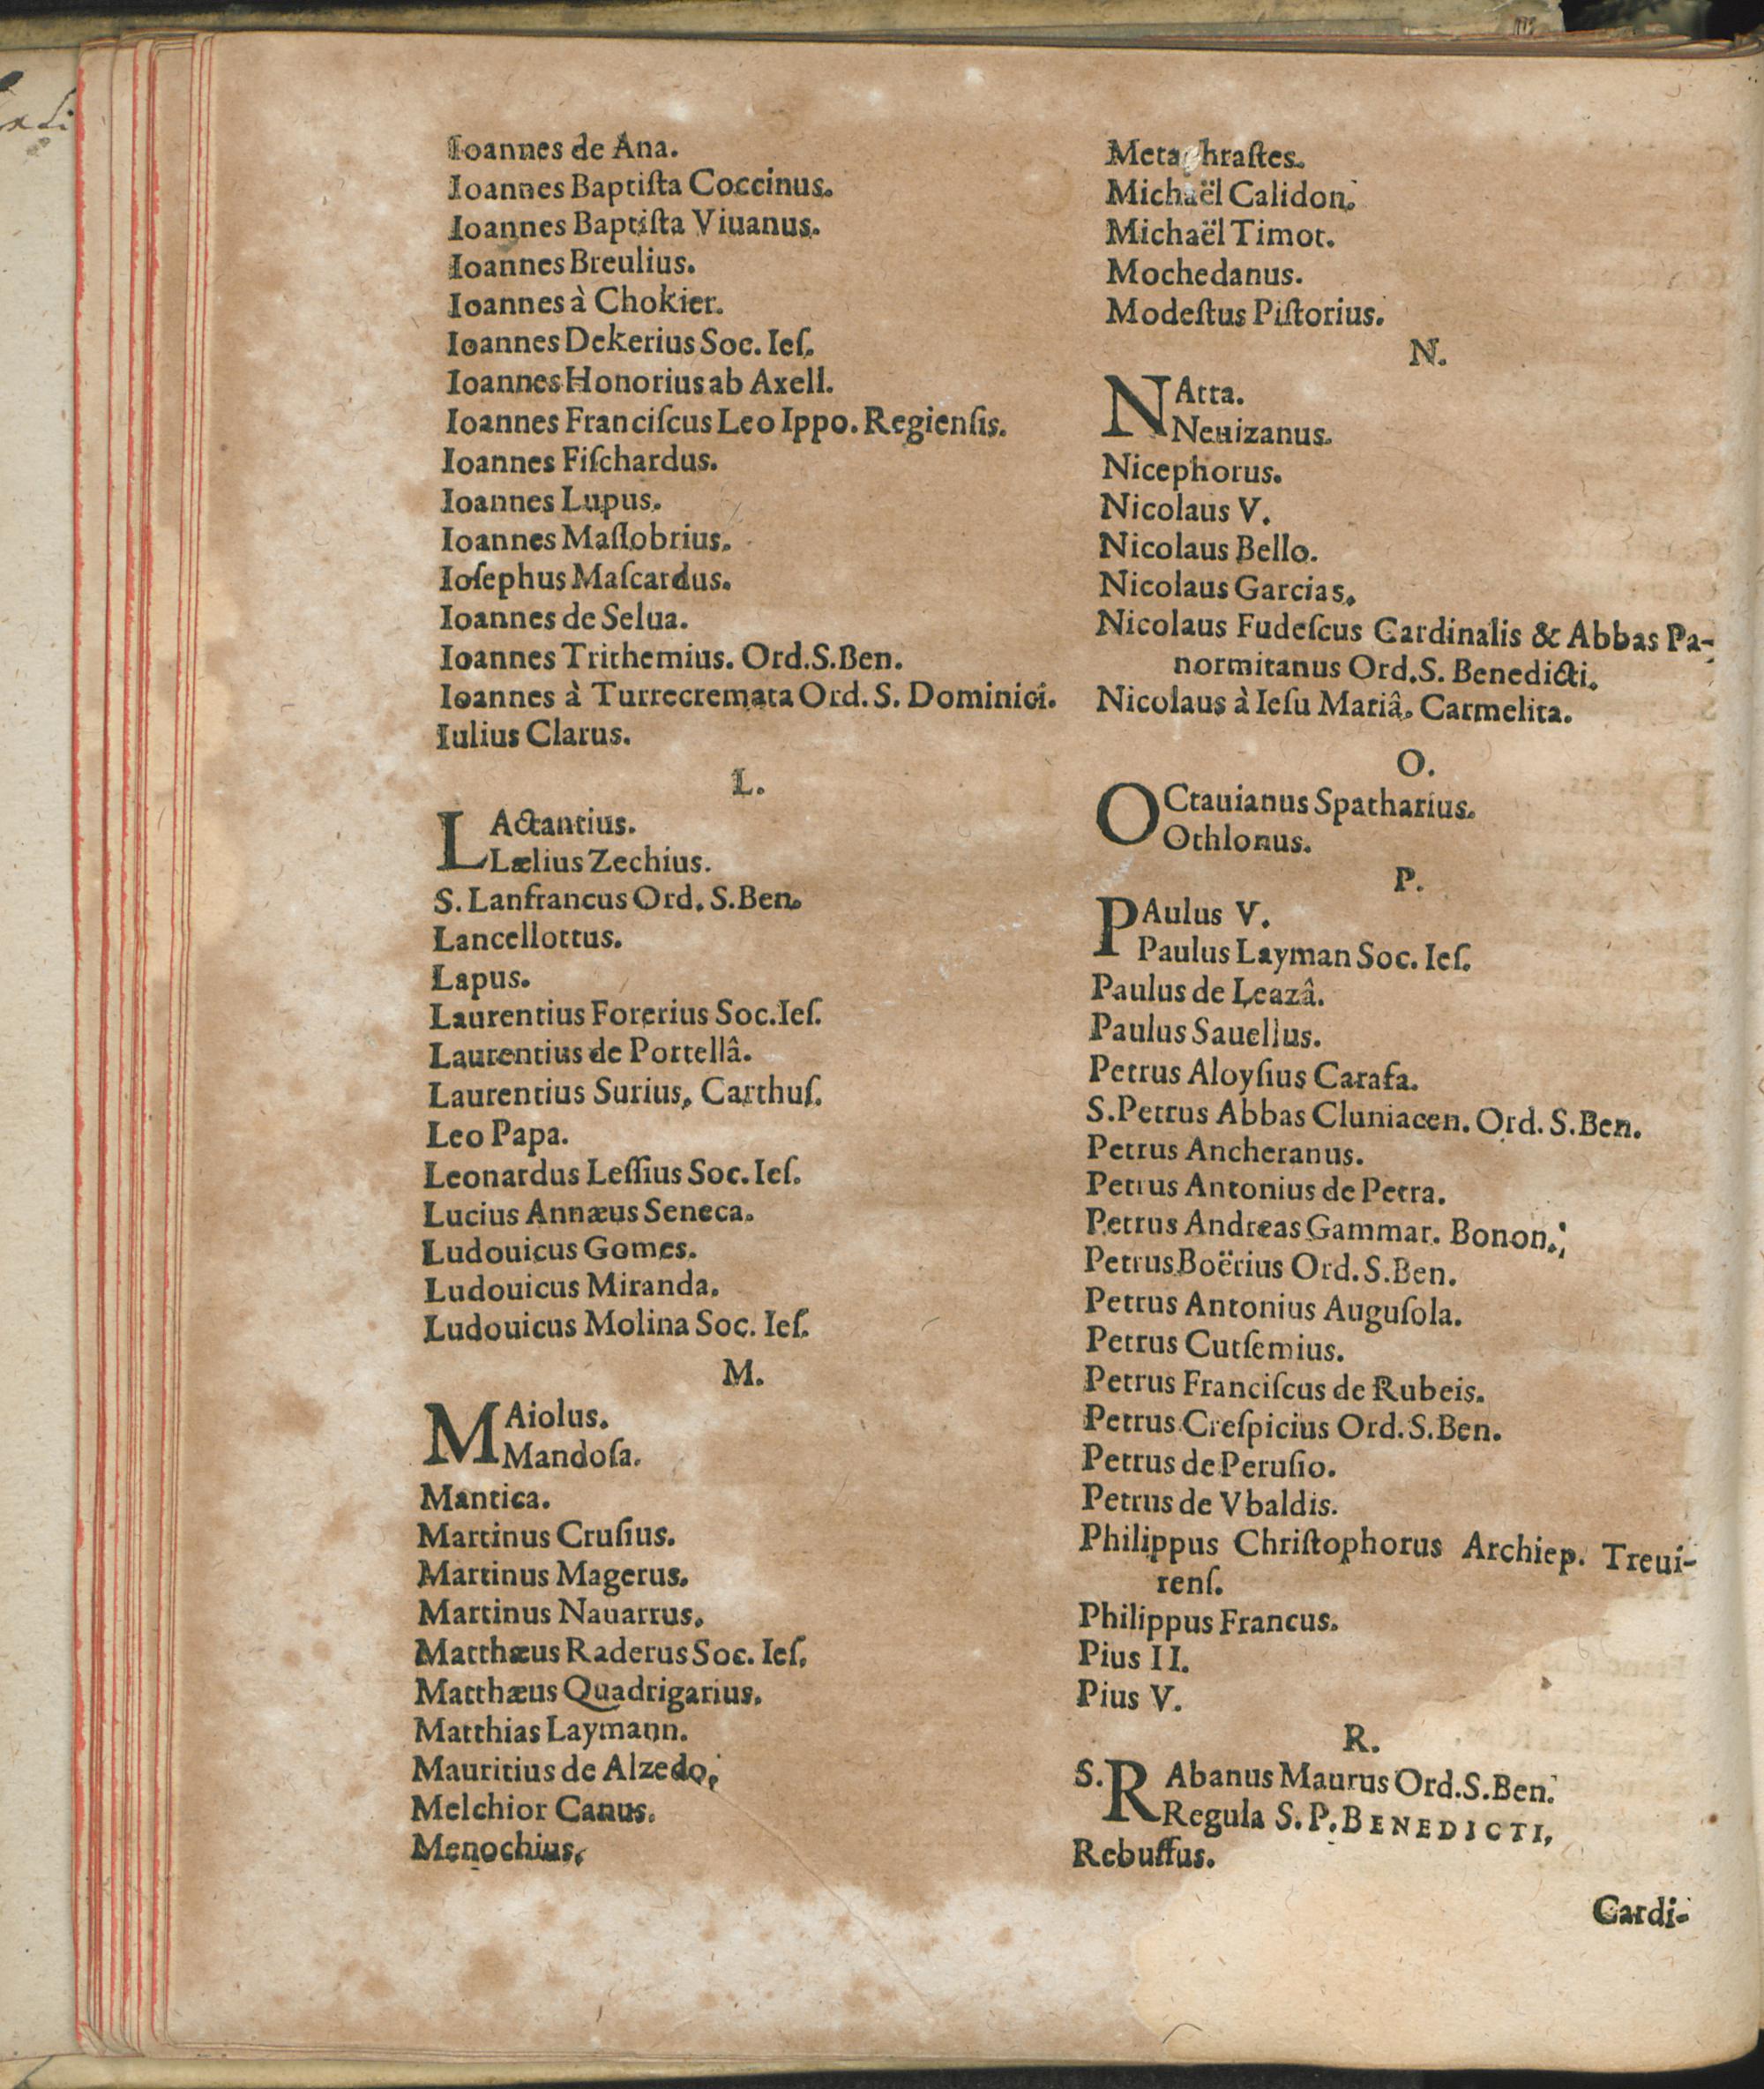 Ioannes de Ana.
Ioannes Baptiſta Coccinus.
Ioannes Baptiſta Viuanus.
Ioannes Breulius.
Ioannes à Chokier.
Ioannes Dekerius Soc. Ieſ.
Ioannes Honorius ab Axell.
Ioannes Franciſcus Leo Ippo. Regienſis.
Ioannes Fiſchardus.
Ioannes Lupus.
Ioannes Maſlobrius.
Ioſephus Maſcardus.
Ioannes de Selua.
Ioannes Trithemius. Ord.S.Ben.
Ioannes à Turrecremata Ord. S. Dominici.
Iulius Clarus.
L.
LActantius.
Lælius Zechius.
S. Lanfrancus Ord. S.Ben.
Lancellottus.
Lapus.
Laurentius Forerius Soc.Ieſ.
Laurentius de Portellâ.
Laurentius Surius, Carthuſ.
Leo Papa.
Leonardus Leſſius Soc. Ieſ.
Lucius Annæus Seneca.
Ludouicus Gomes.
Ludouicus Miranda.
Ludouicus Molina Soc. Ieſ.
M.
MAiolus.
Mandoſa.
Mantica.
Martinus Cruſius.
Martinus Magerus.
Martinus Nauarrus.
Matthæus Raderus Soc. Ieſ.
Matthæus Quadrigarius.
Matthias Laymann.
Mauritius de Alzedo.
Melchior Canus.
Menochius.
Metaphraſtes.
Michaël Calidon.
Michaël Timot.
Mochedanus.
Modeſtus Piſtorius.
N.
NAtta.
Neuizanus.
Nicephorus.
Nicolaus V.
Nicolaus Bello.
Nicolaus Garcias.
Nicolaus Fudeſcus Cardinalis & Abbas Pa-
normitanus Ord.S. Benedicti.
Nicolaus à Ieſu Mariâ. Carmelita.
O.
OCtauianus Spatharius.
Othlonus.
P.
PAulus V.
Paulus Layman Soc. Ieſ.
Paulus de Leazâ.
Paulus Sauellus.
Petrus Aloyſius Carafa.
S.Petrus Abbas Cluniacen. Ord. S.Ben.
Petrus Ancheranus.
Petrus Antonius de Petra.
Petrus Andreas Gammar. Bonon.
Petrus Boërius Ord. S.Ben.
Petrus Antonius Auguſola.
Petrus Cutſemius.
Petrus Franciſcus de Rubeis.
Petrus Creſpicius Ord. S.Ben.
Petrus de Peruſio.
Petrus de Vbaldis.
Philippus Chriſtophorus Archiep. Treui-
renſ.
Philippus Francus.
Pius II.
Pius V.
R.
S. RAbanus Maurus Ord.S.Ben.
Regula S. P. BENEDICTI,
Rebuffus.
Cardi-